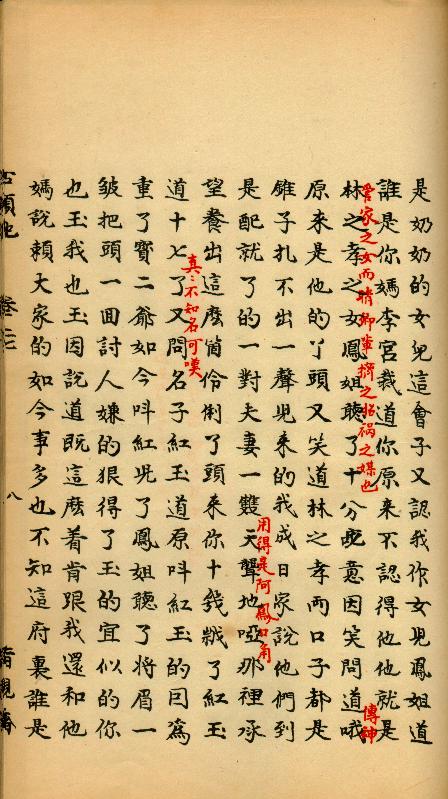 是奶奶的女兒這會子又認我作女兒鳳姐道
誰是你媽李宮裁道你原来不認得他他就是
管家之女而晴卿輩擠之招禍之媒也
林之孝之女鳳姐聽了十分咤意因笑問道哦
傳神
原来是他的丫頭又笑道林之孝両口子都是
錐子扎不出一聲兒来的我成日家說他們到
用得是阿鳳口角
是配就了的一對夫妻一雙天聾地啞那裡承
望養出這麽箇伶俐丫頭来你十幾歲了紅玉
真〻不知名可嘆
道十七了又問名子紅玉道原呌紅玉的因為
重了寳二爺如今呌紅児了鳳姐聽了將眉一
皱把頭一回討人嫌的狠得了玉的宜似的你
也玉我也玉因說道既這麽着肯跟我還和他
媽說頼大家的如今事多也不知這府裏誰是
石頭記 卷二七 八 脂硯齋